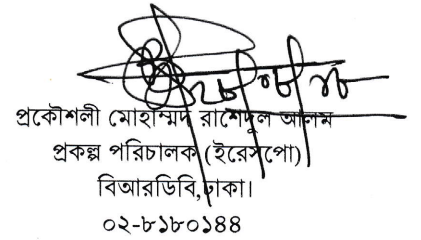 প্রকৌশলী মোহাম্মদ রাশেদুল আলম
প্রকল্প পরিচালক (ইরেসপো)
বিআরডিবি, ঢাকা।
০২-৮১৮০১৪৪